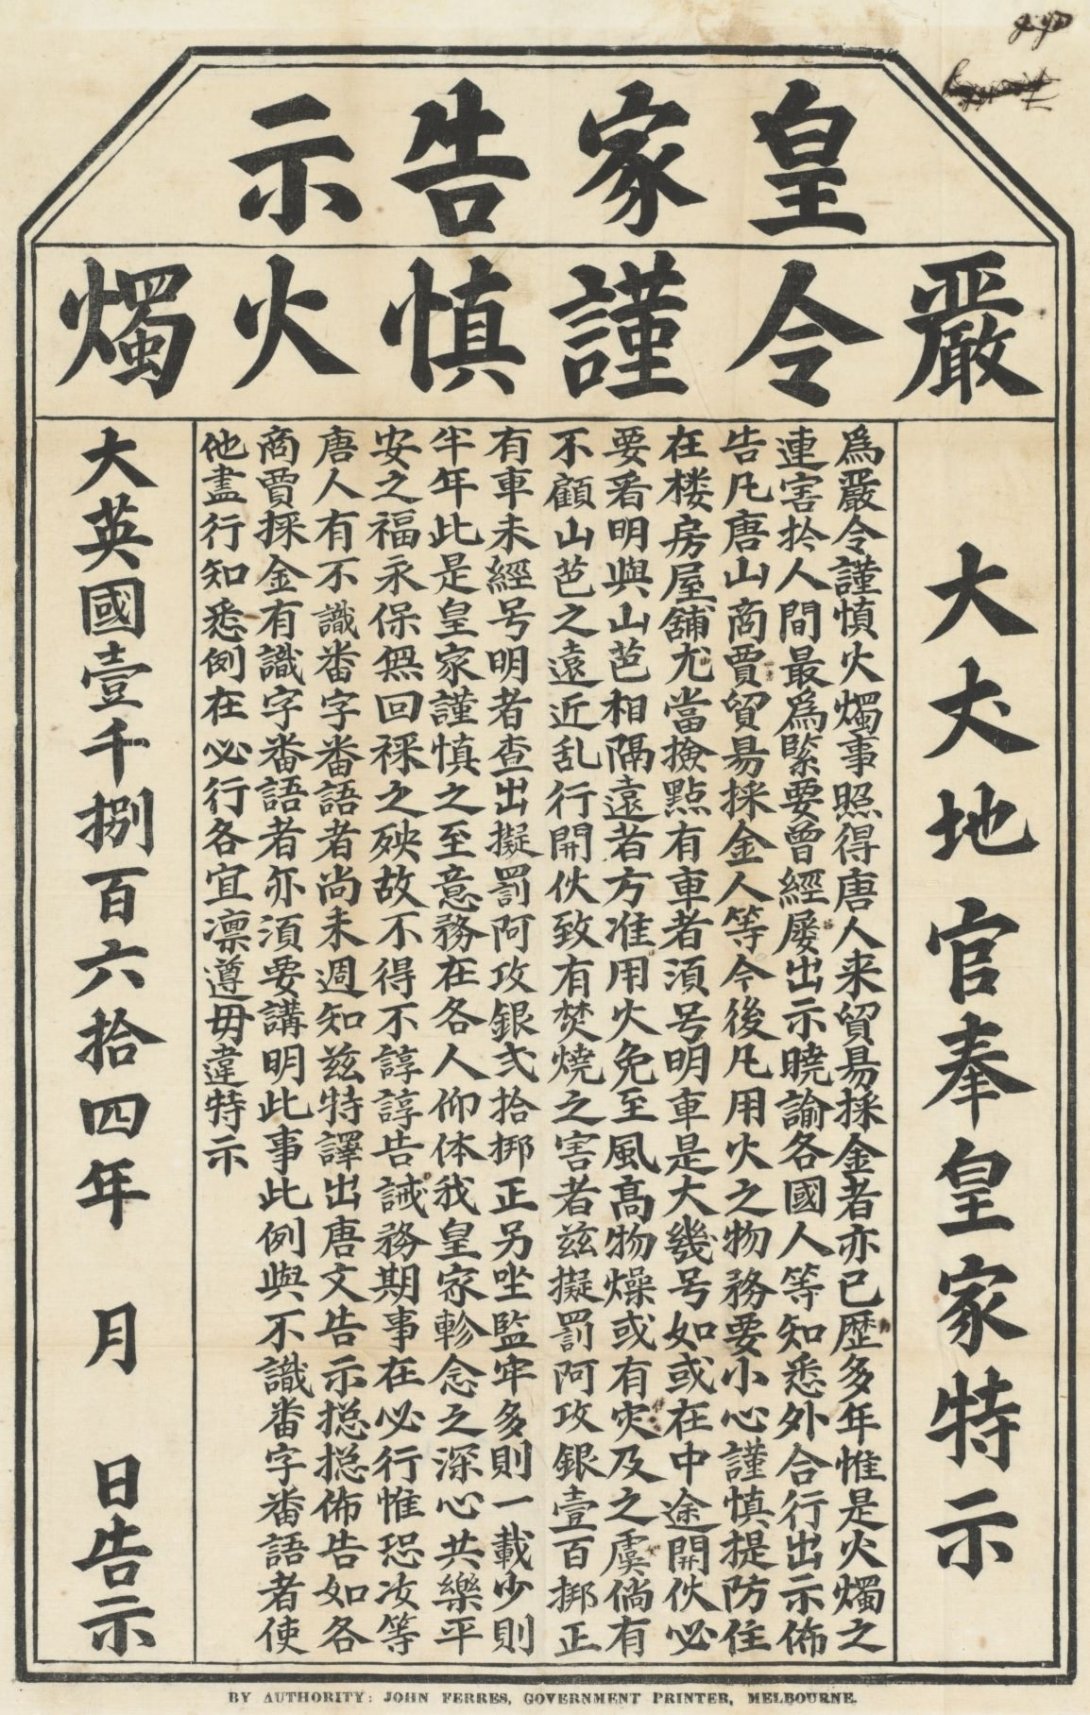 皇家告示
嚴令謹慎火燭
大犬地官奉皇家特示
爲嚴令謹慎火燭事照得唐人来貿易採金者亦已歷多年惟是火燭之
連害於人間最爲緊要曾經屡出示曉諭各國人等知悉外合行出示佈
告凡唐山商賈貿易採金人等令後凡用火之物務要小心謹慎提防住
在楼房屋舖尤當撿點有車者須号明車是大幾号如或在中途開伙必
要看明與山芭相隔遠者方准用火免至風高物燥或有灾及之虞倘有
不顧山芭之遠近乱行開伙致有焚燒之害者兹擬罰阿攻銀壹百挷正
有車未經号明者查出擬罰阿攻銀弍拾挷正另坐監牢多則一載少則
半年此是皇家謹慎之至意務在各人仰体我皇家軫念之深心共樂平
安之福永保無回祿之殃故不得不諄諄告誡務期事在必行惟恐汝等
唐人有不識番字番語者尚未週知兹特譯出唐文告示揔揔佈告如各
商賈採金有識字番語者亦須要講明此事此例與不識番字番語者使
他盡行知悉例在必行各宜凛遵毋違特示
大英國壹千捌百六拾四年 月 日告示
BY AUTHORITY: JOHN FERRES, GOVERNMENT PRINTER, MELBOURNE.